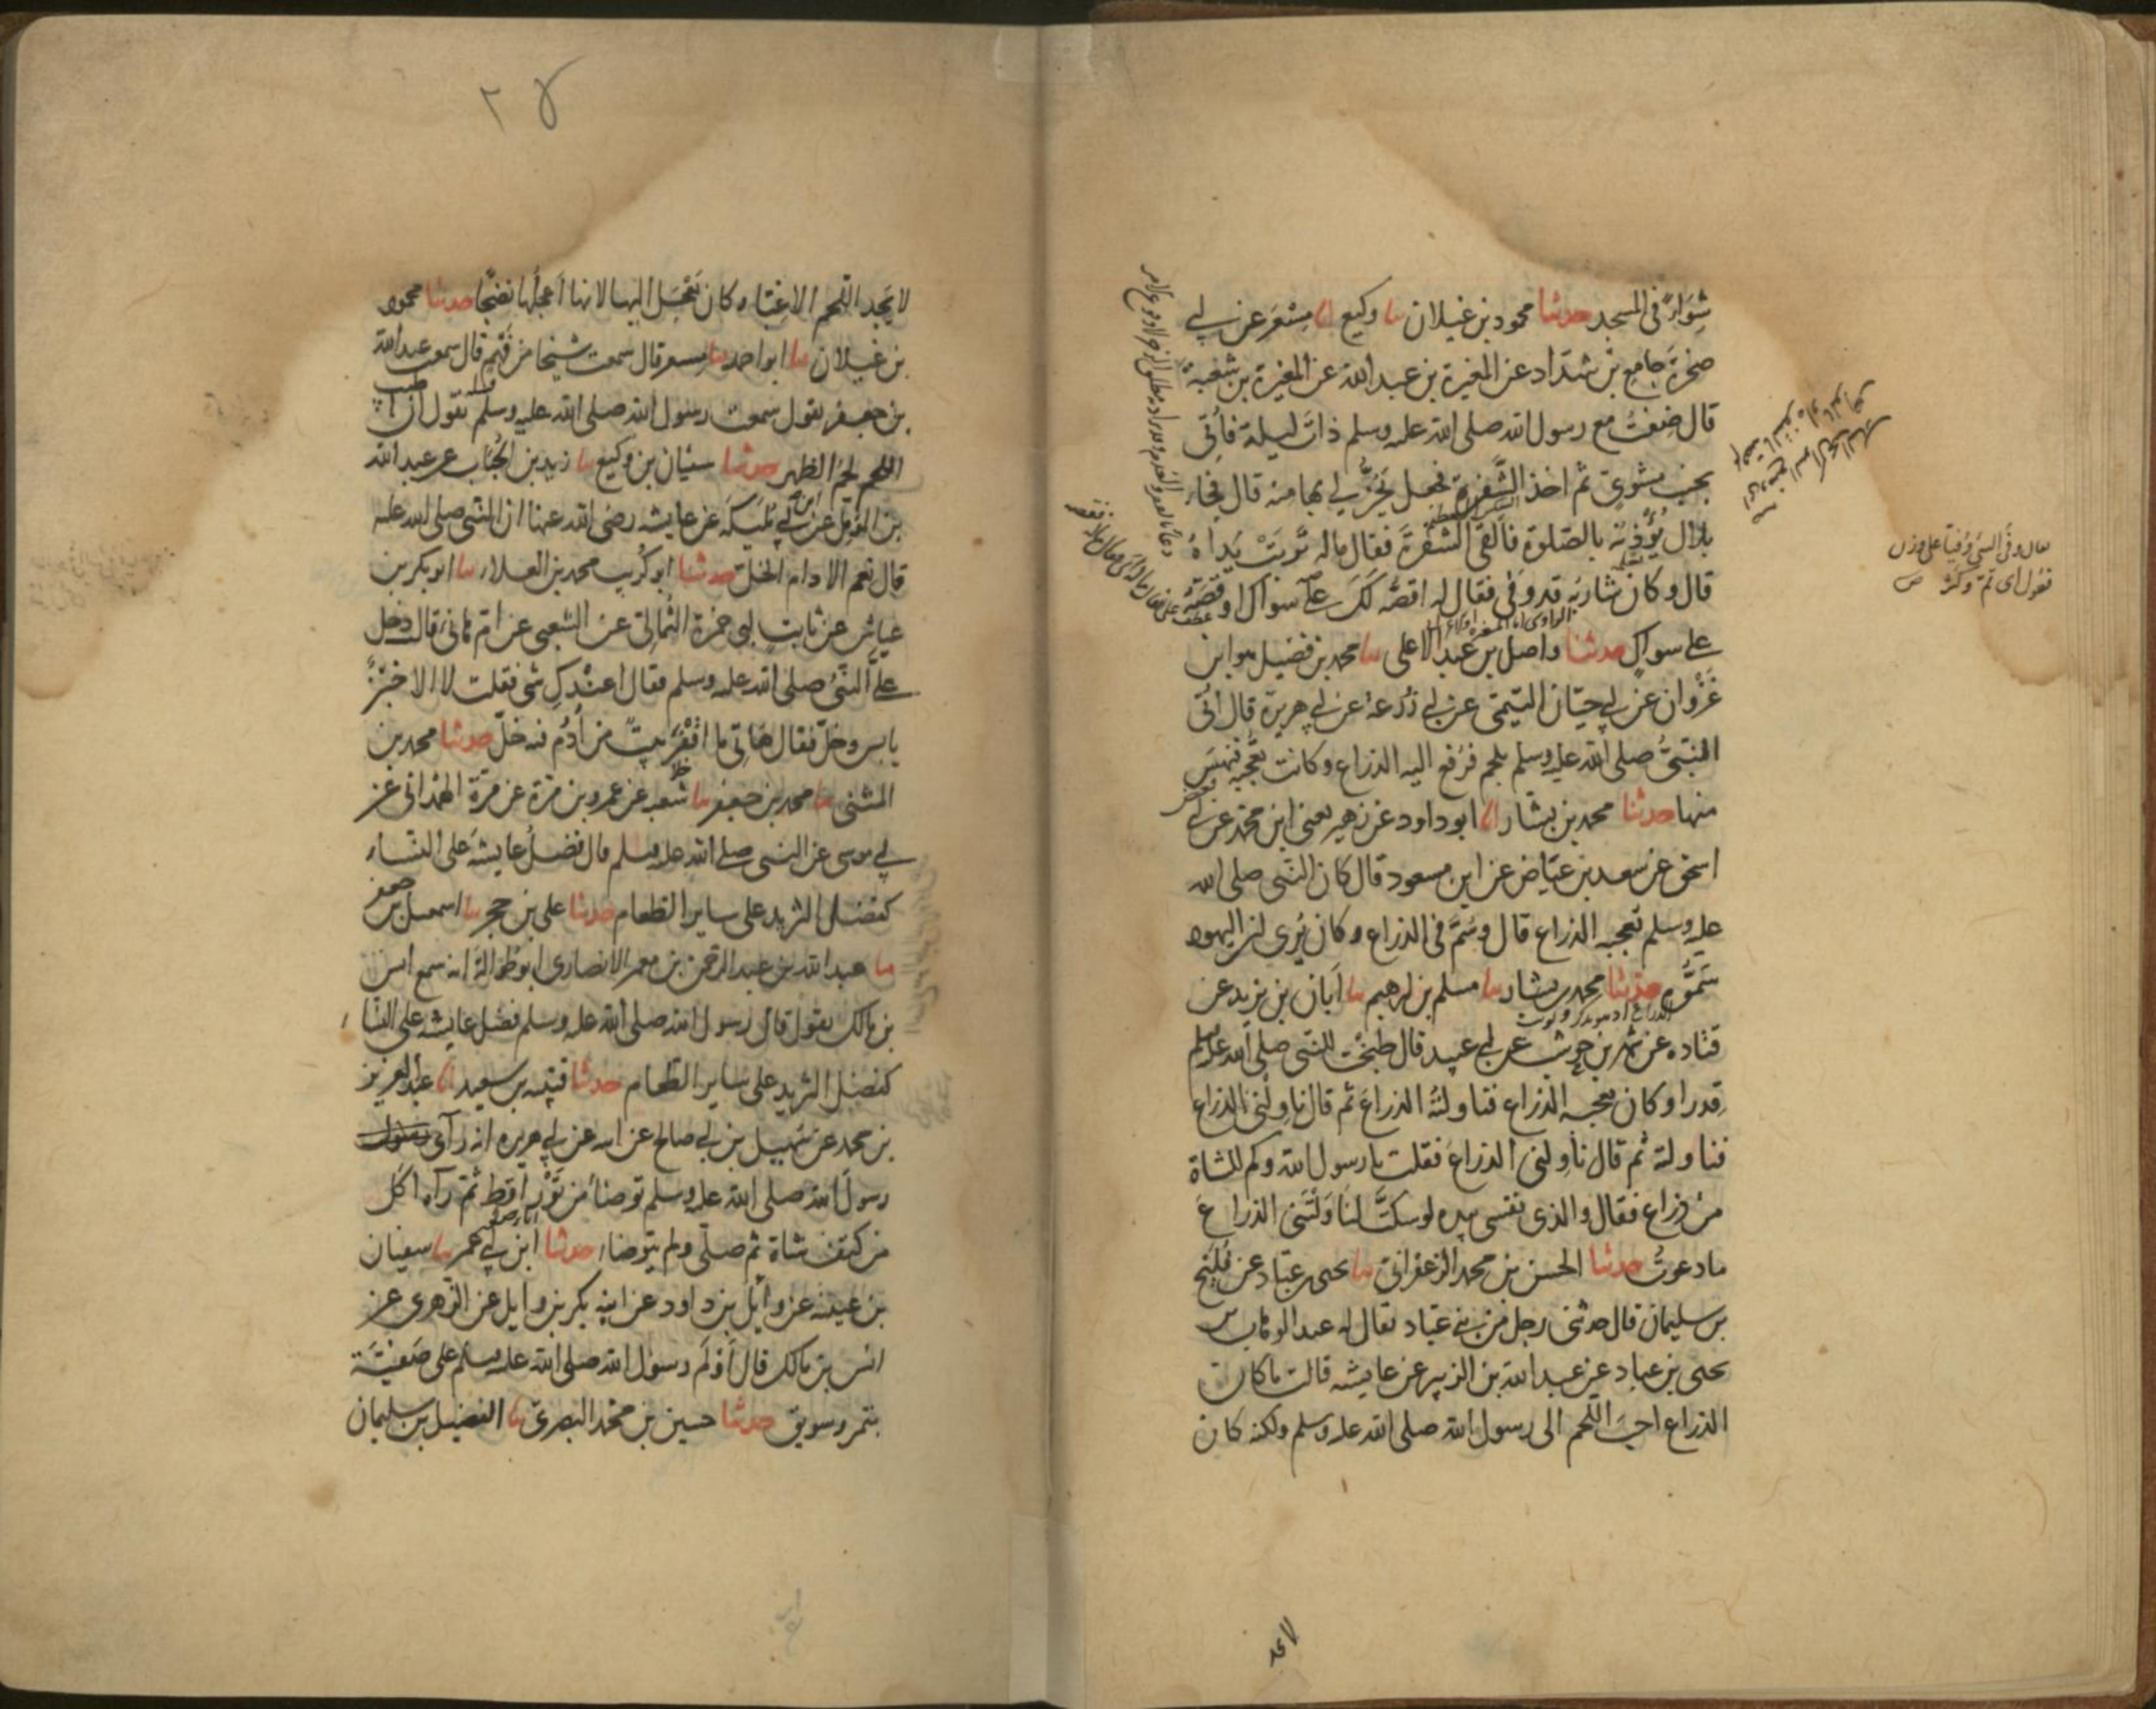 شواء في المسجد حدثنا محمود بن غيلان ثنا وكيع انا مسعر عن ابي
صخرة جامع بن شداد عن المغيرة بن عبد الله عن المغيرة بن شعبة
قال ضفت مع رسول الله صلى الله عليه وسلم ذات ليلة فأتي
بجنب مشوي ثم اخذ الشفرة فجعل يحز لي بها منه قال فجاء
بلال يؤذنه بالصلوة فالقى الشفرة فقال ماله تربت يداه
قال وكان شاربه قد وفى فقال له اقصه لك على سواك او قصه
على سواك حدثنا واصل بن عبد الاعلى ثنا محمد بن فضيل هو ابن
غزوان عن ابي حيان التيمي عن ابي زرعة عن ابي هريرة قال اتي
النبي صلى الله عليه وسلم بلحم فرفع اليه الذراع وكانت تعجبه فنهس
منها حدثنا محمد بن بشار انا ابو داود عن زهير يعني ابن محمد عن ابي
اسحق عن سعد بن عياض عن ابن مسعود قال كان النبي صلى الله
عليه وسلم تعجبه الذراع قال وسم في الذراع وكان يرى ان اليهود
سموه حدثنا محمد بن بشار ثنا مسلم بن ابرهيم ثنا ابان بن يزيد عن
قتاده عن شهر بن حوشب عن ابي عبيد قال طبخت للنبي صلى الله عليه وسلم
قدرا وكان يعجبه الذراع فناولته الذراع ثم قال ناولني الذراع
فناولته ثم قال ناولني الذراع فقلت يا رسول الله وكم للشاة
من ذراع فقال والذي نفسي بيده لو سكت لناولتني الذراع
ما دعوت حدثنا الحسن بن محمد الزعفراني ثنا يحيى بن عباد عن فليح
بن سليمان قال حدثني رجل من بني عباد يقال له عبد الوهاب بن
يحيى بن عباد عن عبد الله بن الزبير عن عايشه قالت ما كانت
الذراع احب اللحم الى رسول الله صلى الله عليه وسلم ولكنه كان
لا يجد
يقال وفى الشيء وفيا على وزن
فعول اى تم وكثر ص
٢٥
لا يجد اللحم الا غبا وكان يعجل اليها لانها اعجلها نضجا حدثنا محمود
بن غيلان ثنا ابو احمد ثنا مسعر قال سمعت شيخا من فهم قال سمعت عبد الله
بن جعفر يقول سمعت رسول الله صلى الله عليه وسلم يقول ان اطيب
اللحم لحم الظهر حدثنا سفيان بن وكيع ثنا زيد بن الحباب عن عبد الله
بن المؤمل عن ابن ابي مليكة عن عايشه رضى الله عنها ان النبي صلى الله عليه
قال نعم الادام الخل حدثنا ابو كريب محمد بن العلاء ثنا ابو بكر بن
عياش عن ثابت ابي حمزة الثمالي عن الشعبي عن ام هانئ قالت دخل
على النبي صلى الله عليه وسلم فقال اعندك شئ فقلت لا الا خبز
يابس وخل فقال هاتي ما اقفر بيت من ادم فيه خل حدثنا محمد بن
المثنى ثنا محمد بن جعفر ثنا شعبه عن عمرو بن مرة عن مرة الهمداني عن
ابي موسى عن النبي صلى الله عليه وسلم قال فضل عايشة على النساء
كفضل الثريد على ساير الطعام حدثنا علي بن حجر ثنا اسمعيل بن جعفر
ثنا عبد الله بن عبد الرحمن بن معمر الانصاري ابو طوالة انه سمع انس
بن مالك يقول قال رسول الله صلى الله عليه وسلم فضل عايشه على النسا
كفضل الثريد على ساير الطعام حدثنا قتيبه بن سعيد انا عبد العزيز
بن محمد عن سهيل بن ابي صالح عن ابيه عن ابي هريره انه رأى رسول
رسول الله صلى الله عليه وسلم توضأ من ثور اقط ثم رآه اكل
من كتف شاة ثم صلى ولم يتوضا حدثنا ابن ابي عمر ثنا سفيان
بن عيينه عن وائل بن داود عن ابنه بكر بن وايل عن الزهري عن
انس بن مالك قال اولم رسول الله صلى الله عليه وسلم على صفية
بتمر وسويق حدثنا حسين بن محمد البصري ثنا الفضيل بن سليمان